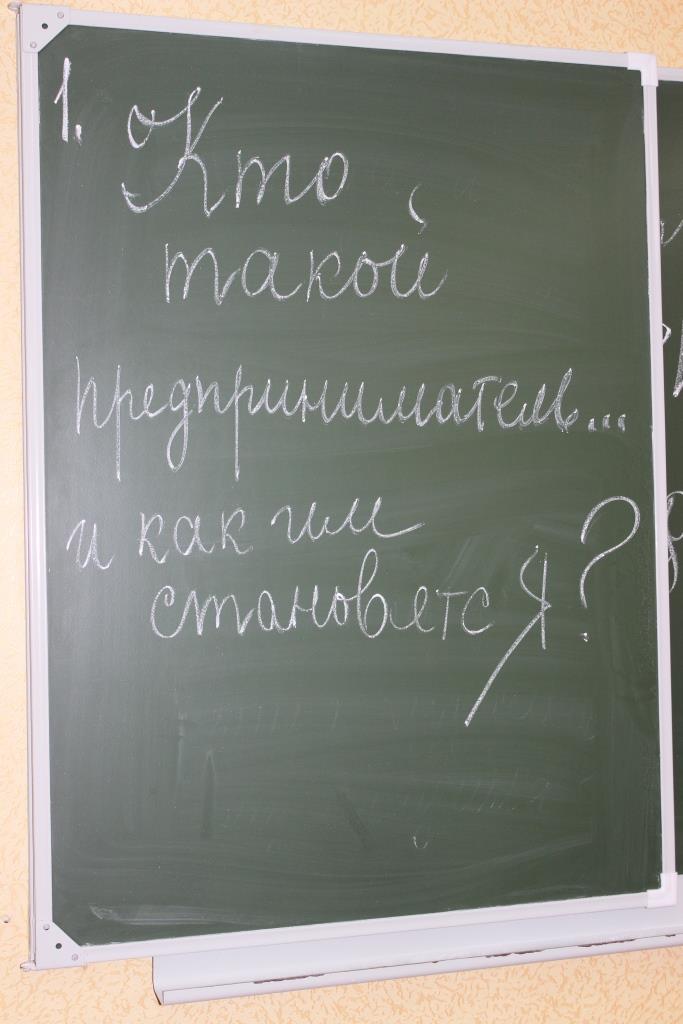 1. Кто
такой
предприниматель...
и как им
становятся Я?